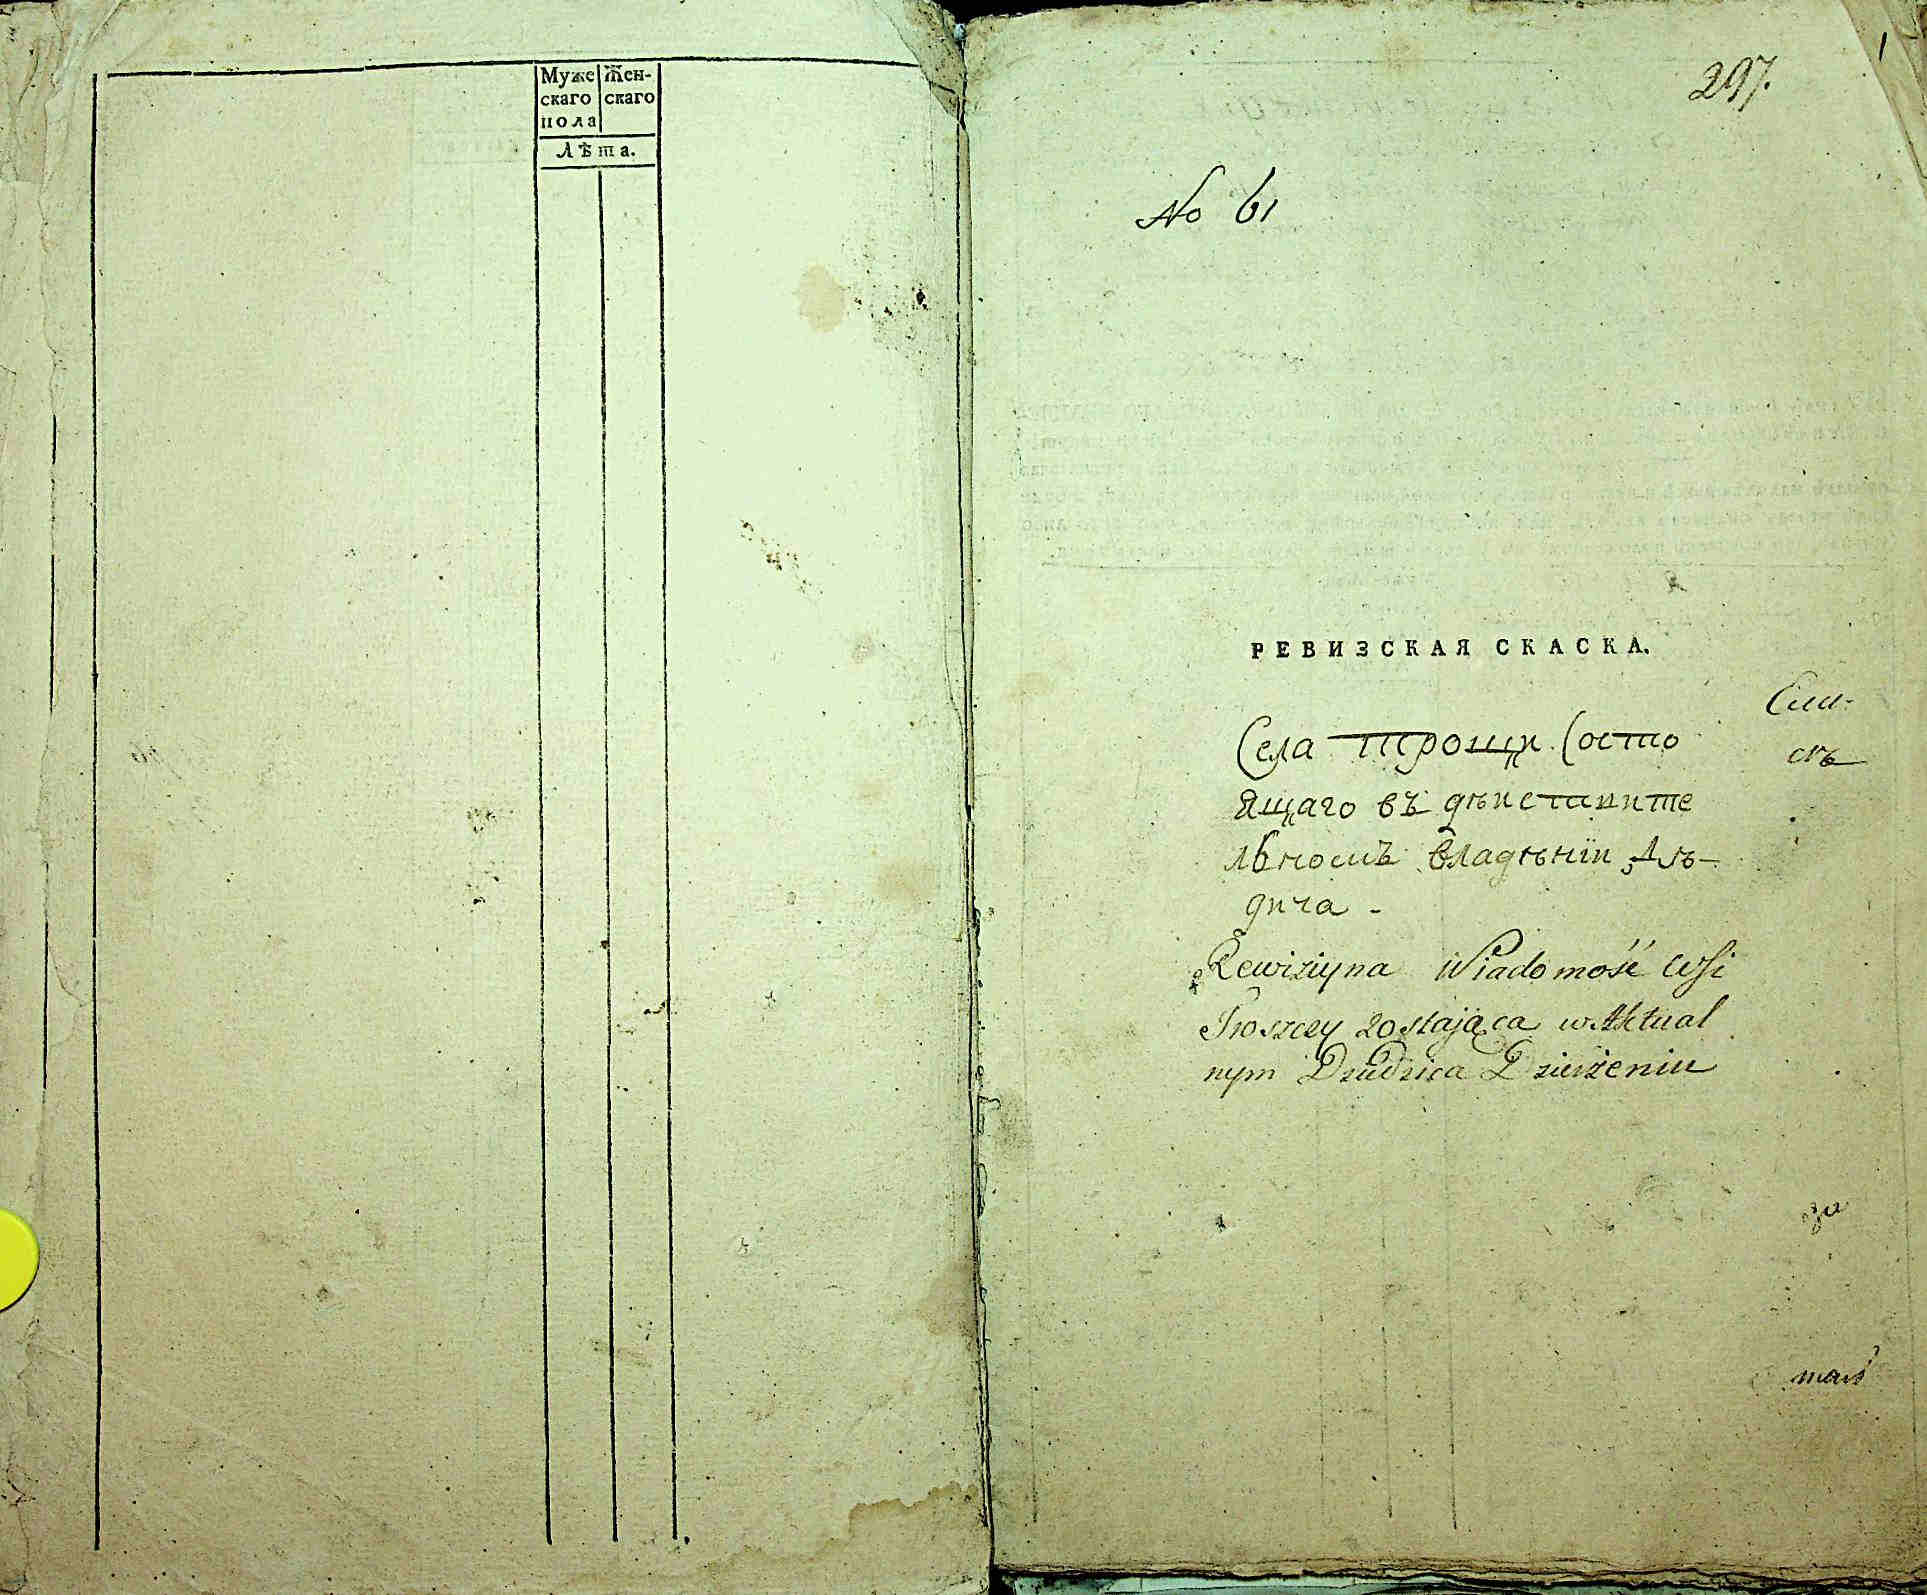 Муже Жен-
скаго скаго
пола
Лѣта.
297.
No 61
РЕВИЗСКАЯ СКАСКА.
Села Трощи Состо
ящаго въ дѣиствите
льномъ владѣнїи Дѣ-
дича -
Rewiziyna Wiadomość Wsi
Troszczy zostająca w Aktual
nym Dziedzica Dzierżeniu